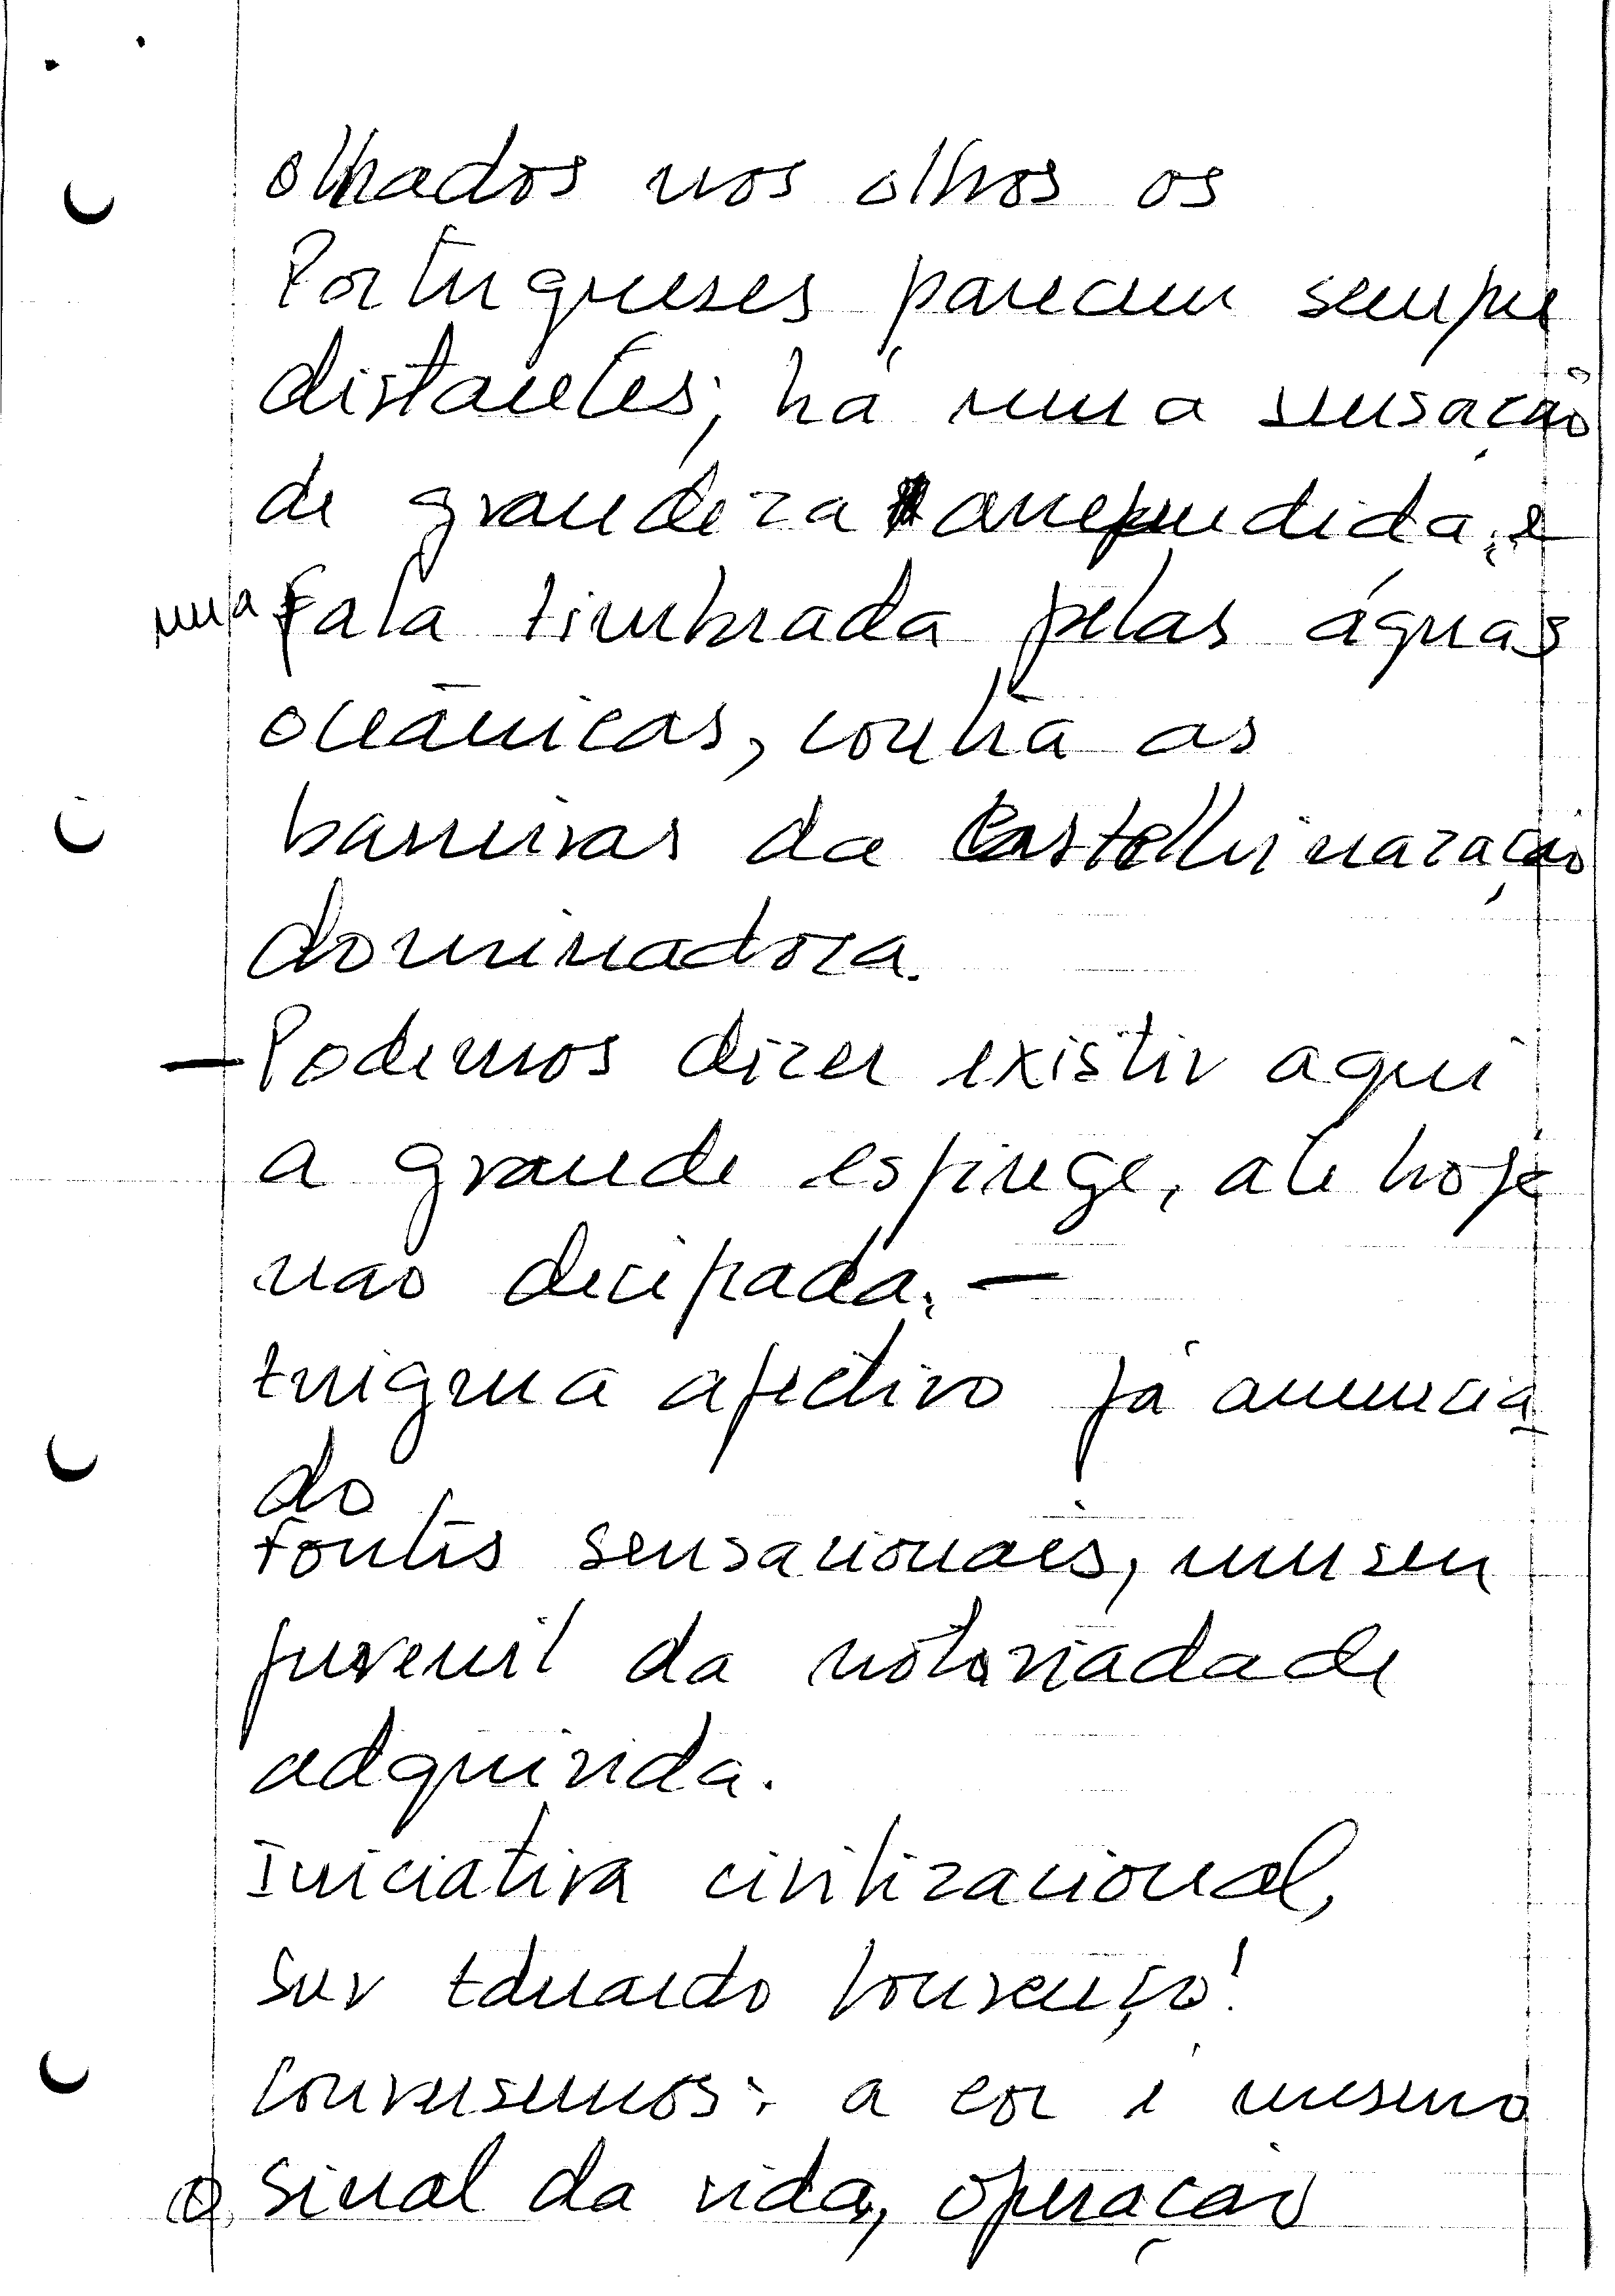 olhados nos olhos os
Portugueses parecem sempre
distantes; há uma sensação
de grandeza arrependida, e
uma fala timbrada pelas águas
oceânicas, contra as
barreiras da
dominadora.
— Podemos dizer existir aqui
a grande esfinge, até hoje
não decifrada. —
Enigma afectivo já anuncia
do
Fontes sensacionais, museu
juvenil da notoriadade
adquirida.
Iniciativa civilizacional,
Sur Eduardo Lourenço!
Conversemos: a cor é mesmo
o sinal da vida, operação